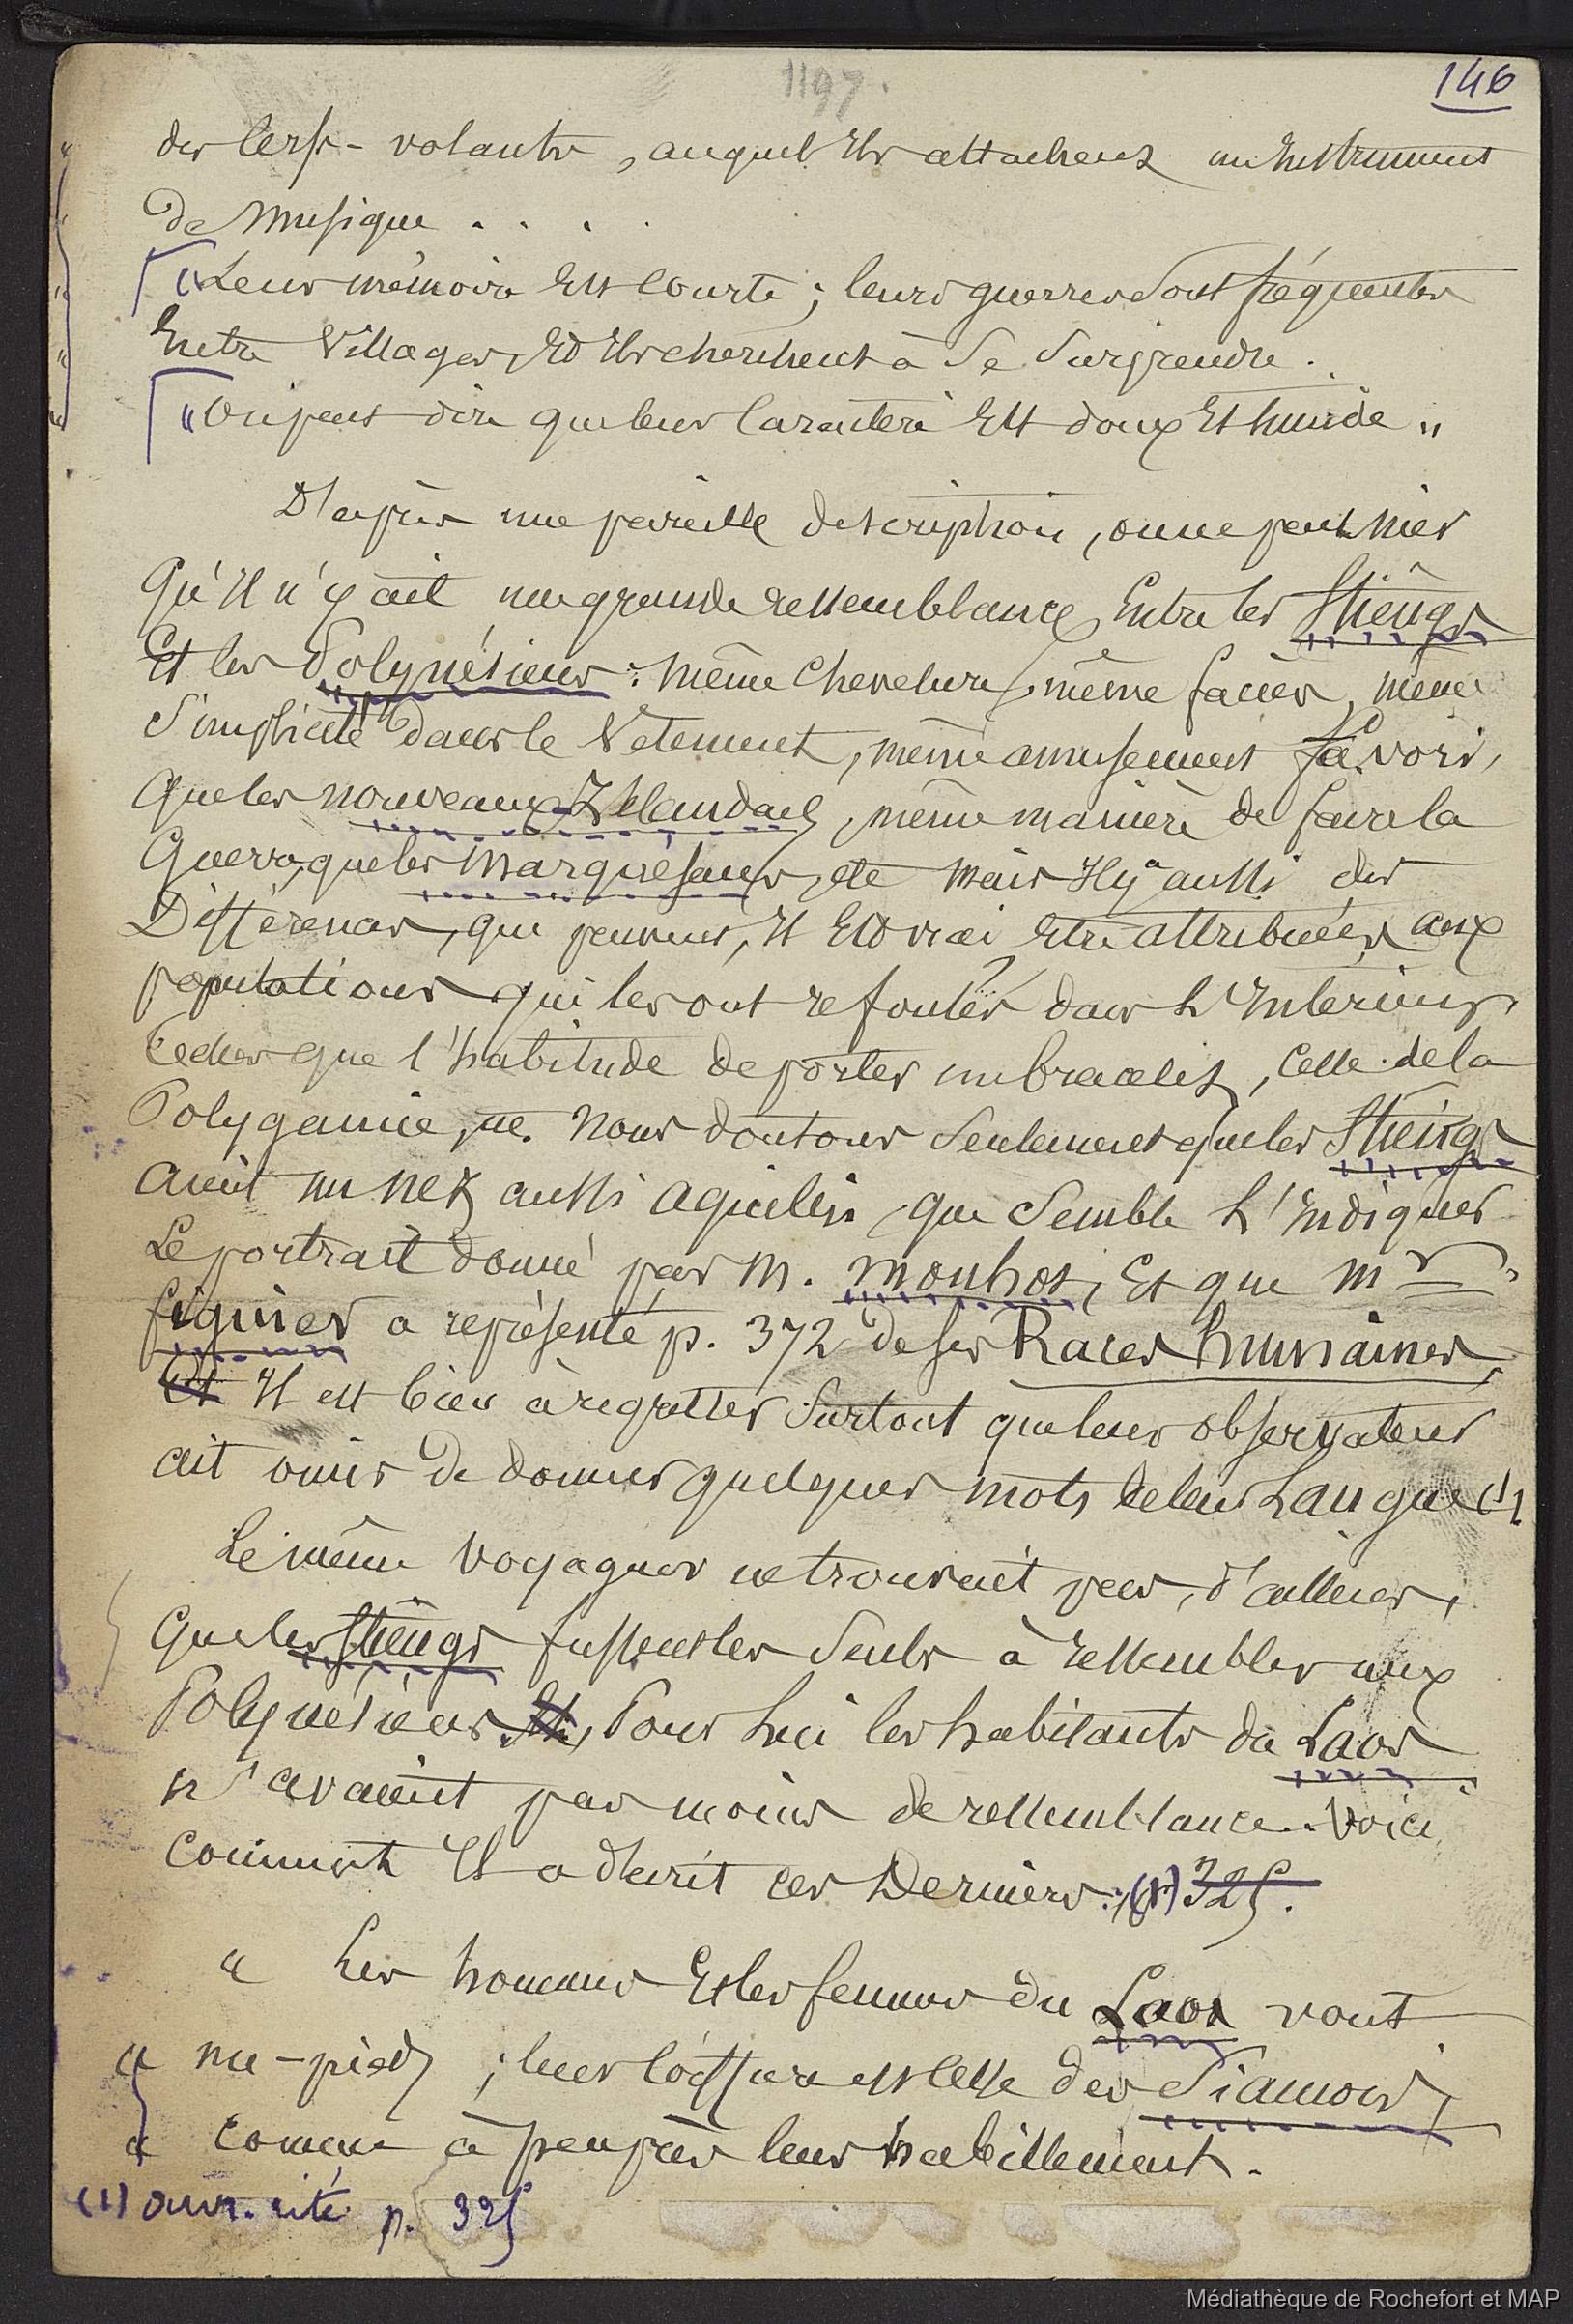 1197.
146
des cerfs-volants, auquel ils attachent un instrument
de musique . . . .
"Leur mémoire est courte ; leurs guerres sont fréquentes
entre villages, et ils cherchent à se surprendre.
"On peut dire que leur caractère est doux et timide"
D'après une pareille description, on ne peut nier
qu'il n'y ait une grande ressemblance entre les Stiêngs
et les Polynésiens : même chevelure, même faciès, même
simplicité dans le vêtement, même amusement favori,
que les nouveaux-Zélandais, même manière de faire la
guerre, que les marquésans, etc mais il y a aussi des
Différences, qui peuvent, il est vrai être attribuées aux
populations qui les ont refoulés dans l'Intérieur,
telles que l'habitude de porter un bracelet, celle de la
Polygamie, etc. nous doutons seulement que les Stiengs
aient un nez aussi aquilin, que semble l'indiquer
le portrait donné par M. mouhot, et que Mr
figuier a représenté p. 372 de ses Races humaines,
Et Il est bien à regretter surtout que leur observateur
ait omis de donner quelques mots de leur Langue (1)
Le même voyageur ne trouvait pas, d'ailleurs,
que les Stiêngs fussent les seuls à ressembler aux
Polynésiens. Pour lui les habitants du Laos
n'avaient pas moins de ressemblance. Voici
comment il a décrit ces Derniers : (1) 325.
" Les hommes et les femmes du Laos vont
" nu-pieds ; leur coiffure est celle des Siamois,
" comme à peu près leur habillement.
(1) ouvr. cité p. 325
Médiathèque de Rochefort et MAP